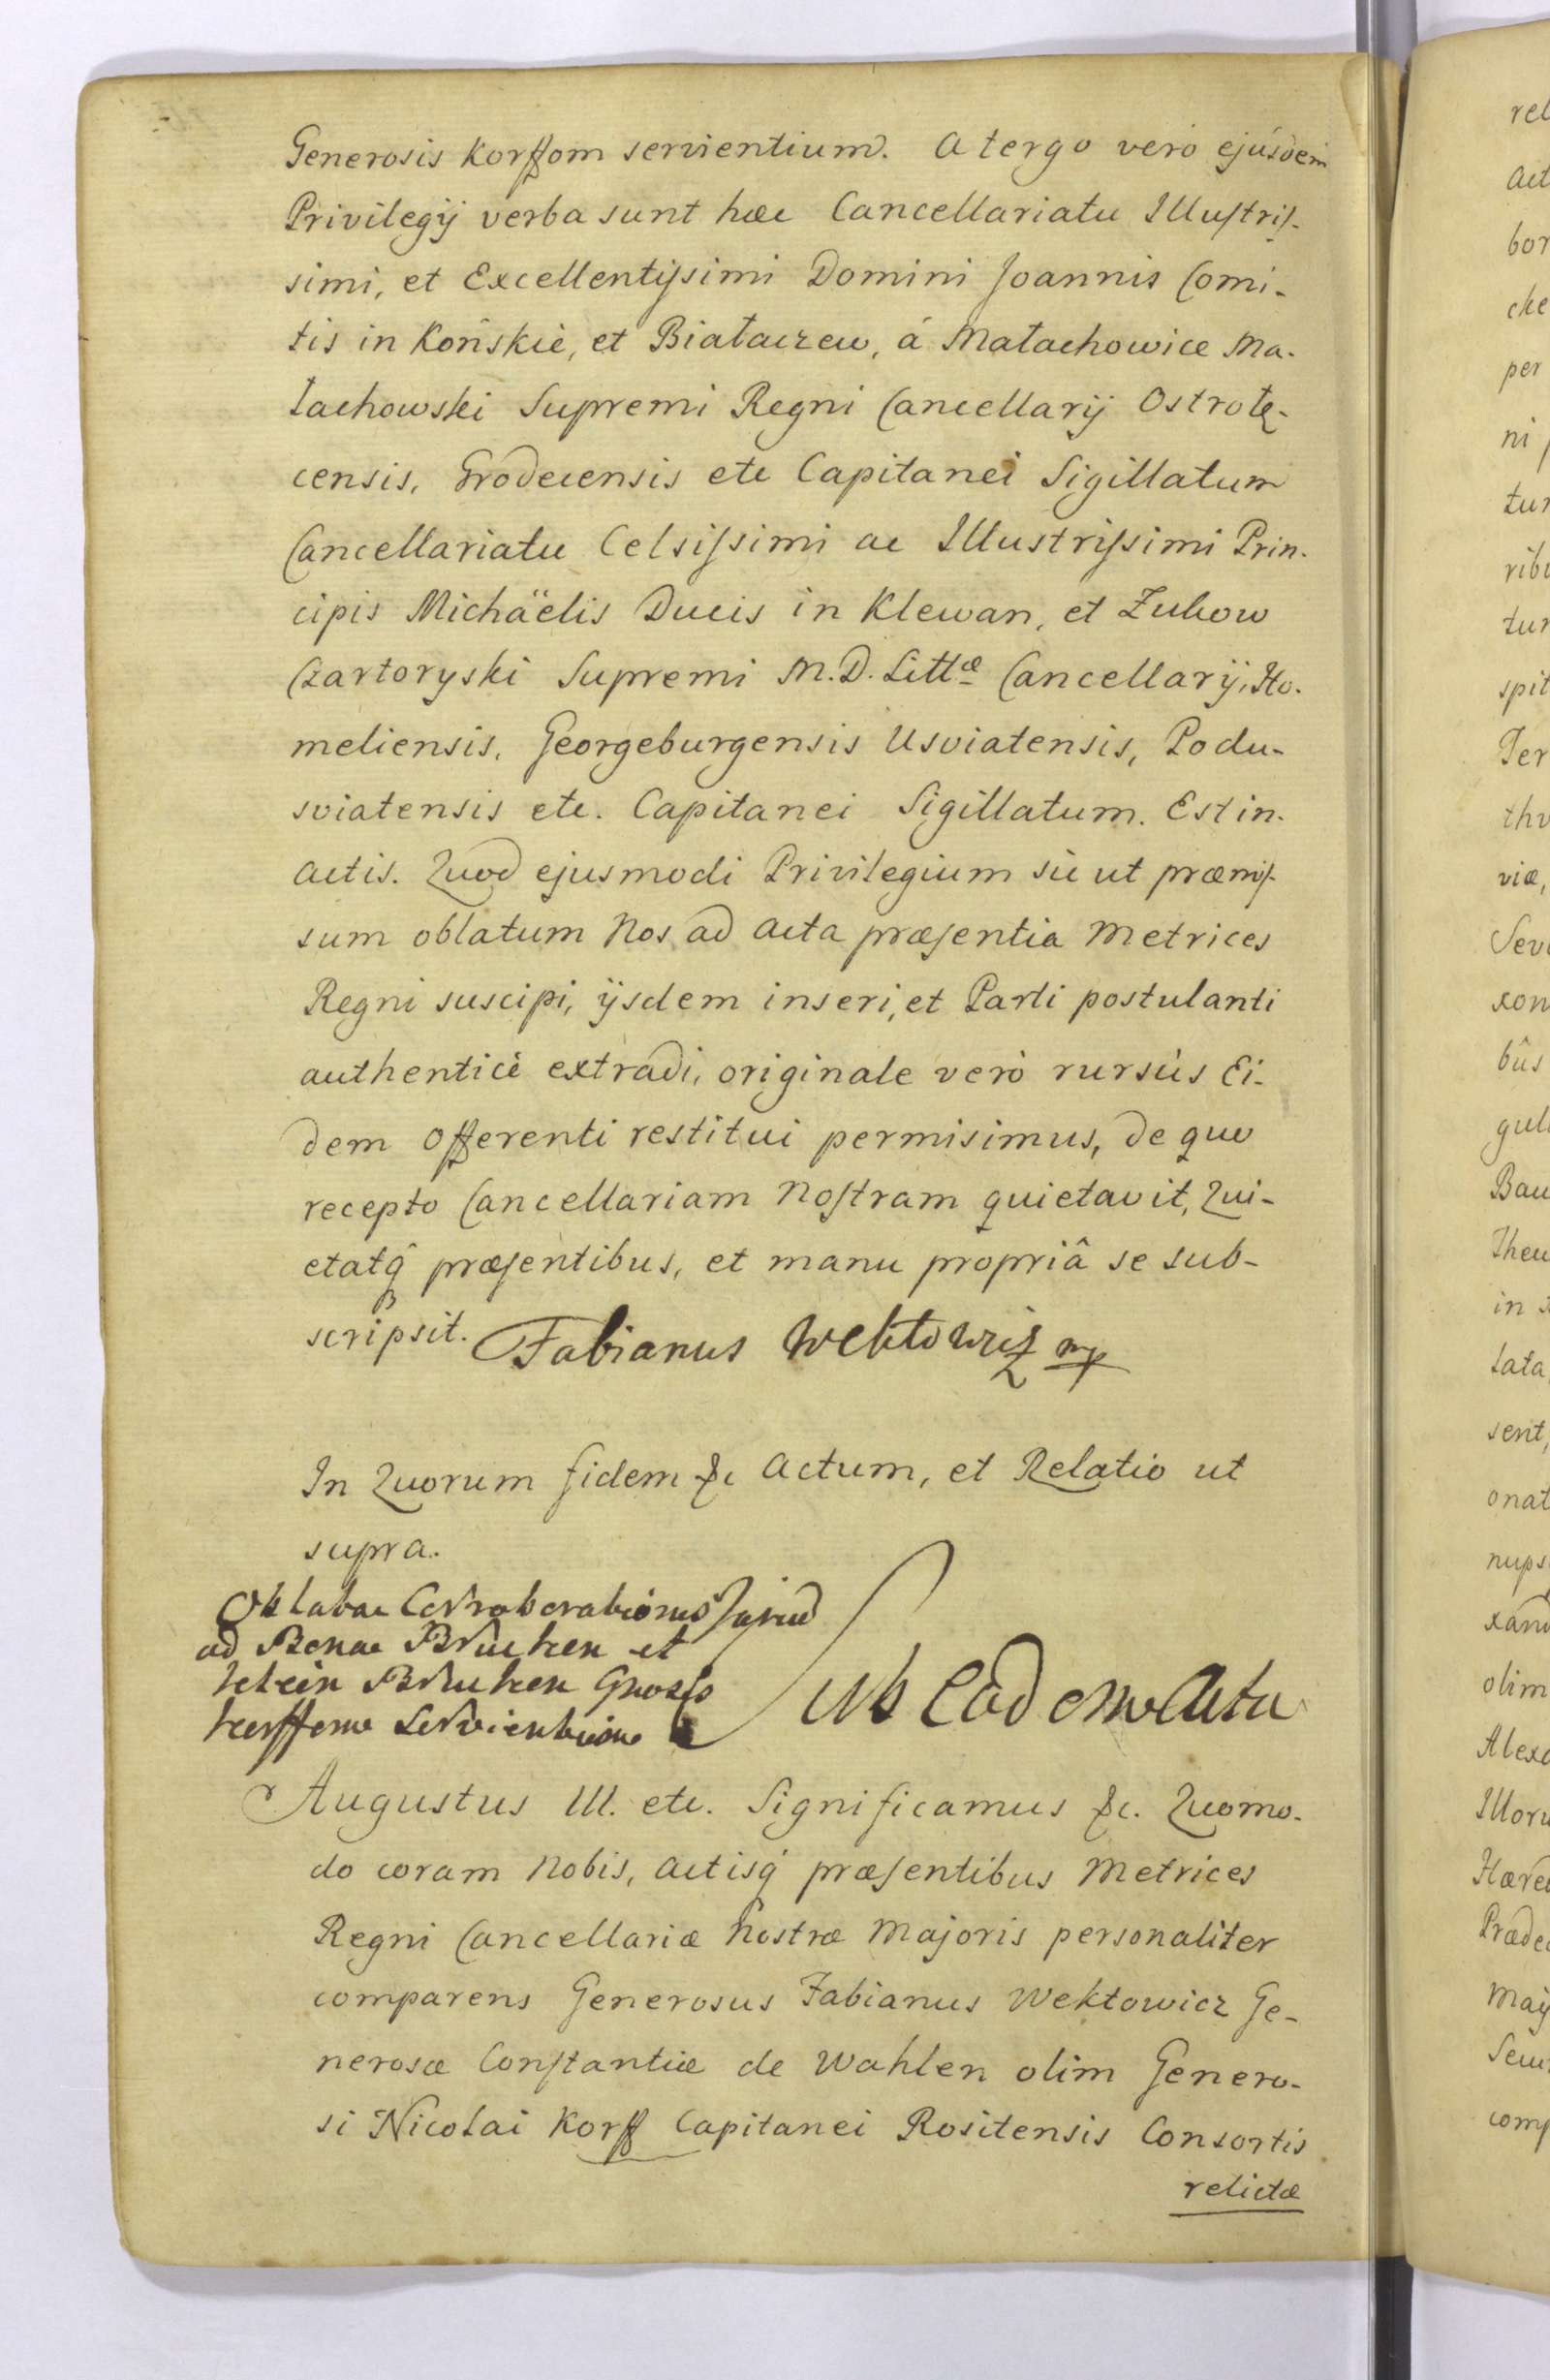 Generosis Korffom servientium. A tergo verò ejúsdem
Privilegÿ verba sunt hæc Cancellariatu Illustris-
simi, et Excellentissimi Domini Joannis Comi-
tis in Końskie, et Białaczew, á Małachowice Ma-
łachowski Supremi Regni Cancellarÿ Ostrołę-
censis, Grodecensis etc Capitanei Sigillatum
Cancellariatu Celsissimi ac Illustrissimi Prin-
cipis Michäelis Ducis in Klewan, et Zukow
Czartoryski Supremi M.D. Littæ Cancellarÿ, Ho-
meliensis, Georgeburgensis Usviatensis, Podu-
sviatensis etc. Capitanei Sigillatum. Est in-
Actis. Quod ejusmodi Privilegium sic ut præmis-
sum oblatum Nos ad Acta præsentia Metrices
Regni suscipi, ÿsdem inseri, et Parti postulanti
authenticè extradi, originale verò rursùs Ei-
dem Offerenti restitui permisimus, de quo
recepto Cancellariam Nostram quietavit, Qui-
etatq̃ præsentibus, et manu propriâ se sub-
scripsit. Fabianus Wektowicz mp
In Quorum fidem &c Actum, et Relatio ut
supra.
Oblatae Corroborationis Jurium
ad Bona Brucken et
Klein Brucken Gnosis
Korffom Servientium
Sub Eadem Acta
Augustus III. etc. Significamus &c. Quomo-
do coram Nobis, Actisq́ præsentibus Metrices
Regni Cancellariæ Nostræ Majoris personaliter
comparens Generosus Fabianus Wektowicz Ge-
nerosæ Constantiæ de Wahlen olim Genero-
si Nicolai Korff Capitanei Rositensis Consortis
relictæ
rel
Act
bor
che
per
ni
tur
ribu
tur
spit
Ter
viæ,
xon
bûs
gul
Bau
Theu
in
lata
sent,
onat
nups
xand
olim
Alexa
Illoru
Hæred
Præde
Maÿ
comp